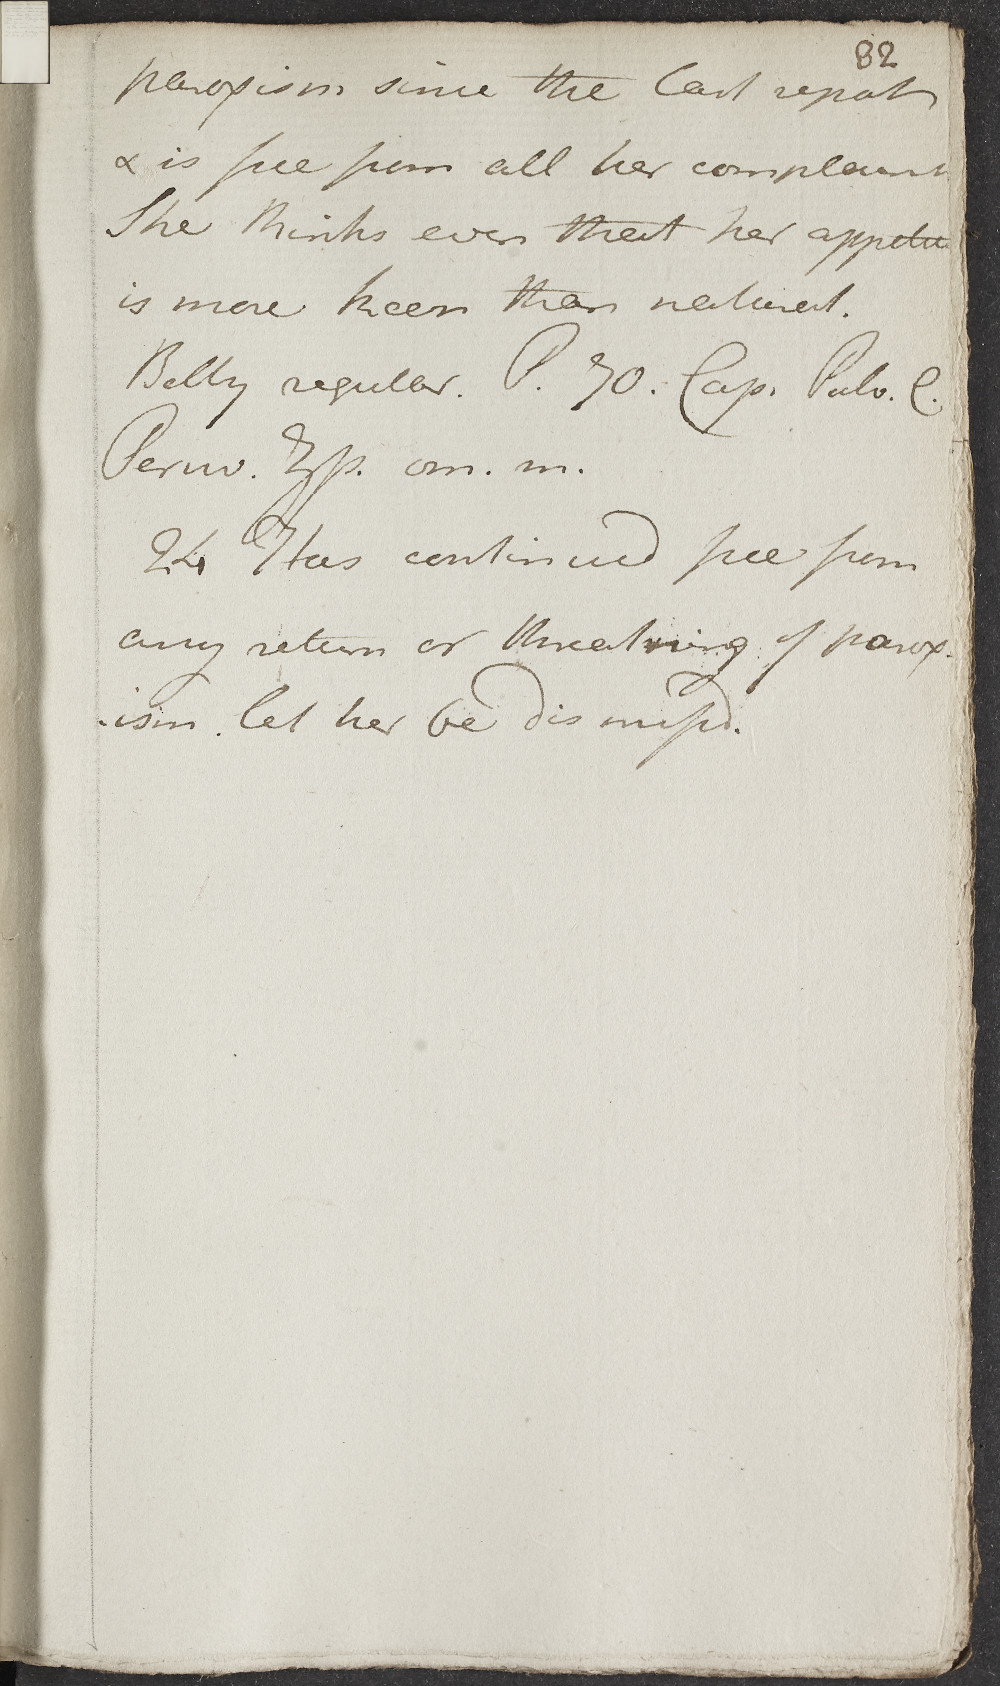 82
paroxism since the last report
& is free from all her complaints
She thinks even that her appetite
is more keen than natural.
Belly regular. P. 70. Cap. Pulv. C.
Peruv. ʒſs. om. m.
24 Has continued free from
any return or threatning of parox-
-ism. let her be dismiſsd.